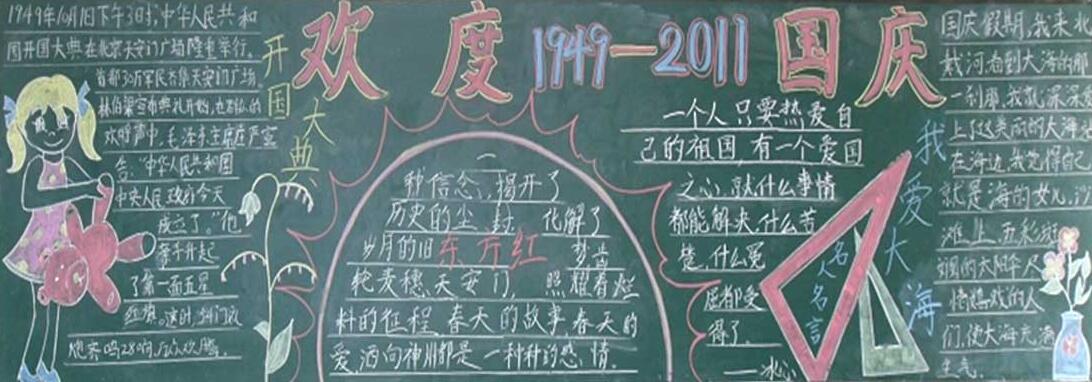 欢度1949—2011国庆
开国大典
1949年10月1日下午3时,中华人民共和
国开国大典在北京天安门广场隆重举行.
首都30万军民齐集天安门广场.
林伯渠宣布典礼开始,在群众的
欢呼声中,毛泽东主席庄严宣
告:"中华人民共和国
中央人民政府今天
成立了。"他
亲手升起
了第一面五星
红旗。这时,
炮齐鸣28响,
一
种信念,揭开了
历史的尘封 化解了
岁月的旧 东方红 梦齿
轮麦穗,天安门, 照耀着烂
料的征程 春天的故事,春天的
爱,洒向神州都是一种种的感情.
一个人只要热爱自
己的祖国,有一个爱国
之心,就什么事情
都能解决,什么苦
楚,什么冤
屈都受
得了.
——冰心
名人名言
我爱大海
国庆假期,我来北
戴河看到大海的那
一刹那,我就深深
上了这美丽的大海.
在海边,我觉得自己
就是海的女儿,沙
滩上五彩斑
斓的太阳伞
情嬉戏的人
们,使大海充满
生气.